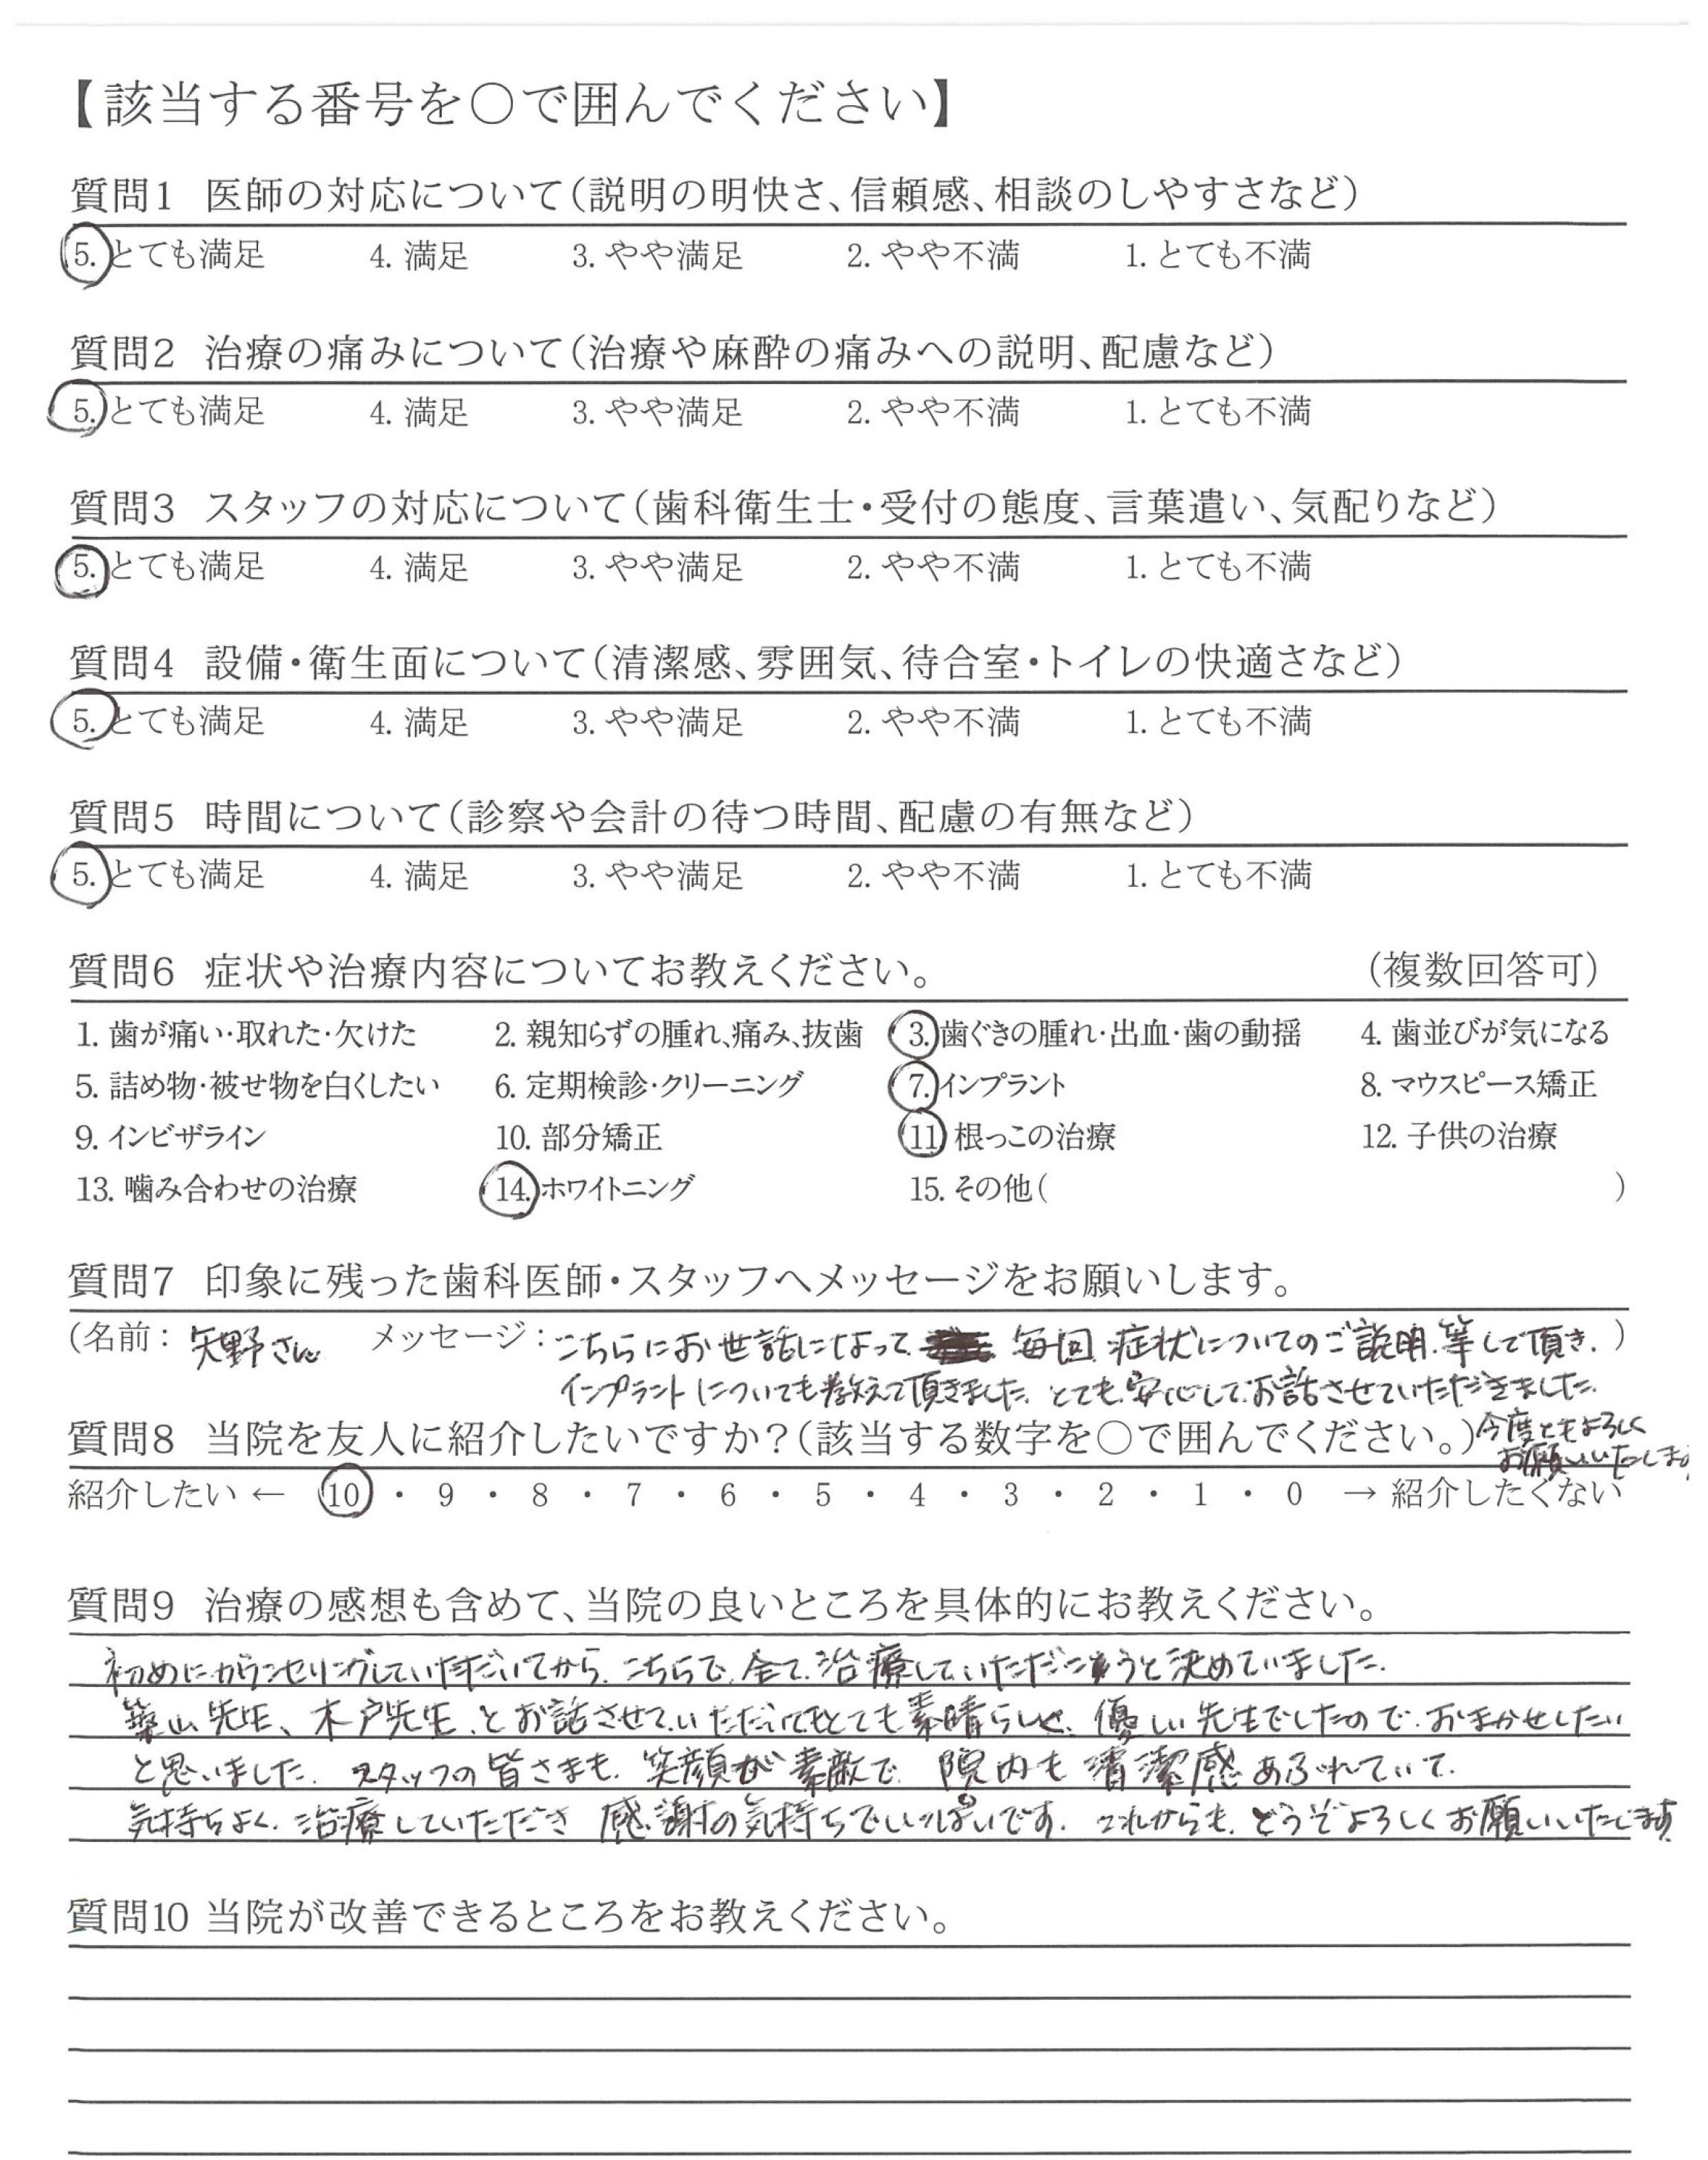 【該当する番号を○で囲んでください】
質問1 医師の対応について(説明の明快さ、信頼感、相談のしやすさなど)
5. とても満足 4. 満足 3. やや満足 2. やや不満 1. とても不満
質問2 治療の痛みについて(治療や麻酔の痛みへの説明、配慮など)
5. とても満足 4. 満足 3. やや満足 2. やや不満 1. とても不満
質問3 スタッフの対応について(歯科衛生士・受付の態度、言葉遣い、気配りなど)
5. とても満足 4. 満足 3. やや満足 2. やや不満 1. とても不満
質問4 設備・衛生面について(清潔感、雰囲気、待合室・トイレの快適さなど)
5. とても満足 4. 満足 3. やや満足 2. やや不満 1. とても不満
質問5 時間について(診察や会計の待つ時間、配慮の有無など)
5. とても満足 4. 満足 3. やや満足 2. やや不満 1. とても不満
質問6 症状や治療内容についてお教えください。 (複数回答可)
1. 歯が痛い・取れた・欠けた 2. 親知らずの腫れ、痛み、抜歯 3. 歯ぐきの腫れ・出血・歯の動揺 4. 歯並びが気になる
5. 詰め物・被せ物を白くしたい 6. 定期検診・クリーニング 7. インプラント 8. マウスピース矯正
9. インビザライン 10. 部分矯正 11. 根っこの治療 12. 子供の治療
13. 噛み合わせの治療 14. ホワイトニング 15. その他( )
質問7 印象に残った歯科医師・スタッフへメッセージをお願いします。
(名前: 矢野さん メッセージ: こちらにお世話になって 毎回 症状についてのご説明.等して頂き. )
インプラントについても教えて頂きました. とても 安心してお話させていただきました.
今度ともよろしく
お願いいたします
質問8 当院を友人に紹介したいですか?(該当する数字を○で囲んでください。)
紹介したい ← 10 ・ 9 ・ 8 ・ 7 ・ 6 ・ 5 ・ 4 ・ 3 ・ 2 ・ 1 ・ 0 → 紹介したくない
質問9 治療の感想も含めて、当院の良いところを具体的にお教えください。
初めにカウンセリングしていただいてから. こちらで 全て 治療していただこうと決めていました.
築山先生、木戸先生、とお話させていただいてとても素晴らしく、優しい先生でしたので. おまかせしたい
と思いました. スタッフの皆さまも. 笑顔が素敵で 院内も 清潔感あふれていて.
気持ちよく. 治療していただき 感謝の気持ちでいっぱいです. これからも. どうぞよろしくお願いいたします.
質問10 当院が改善できるところをお教えください。